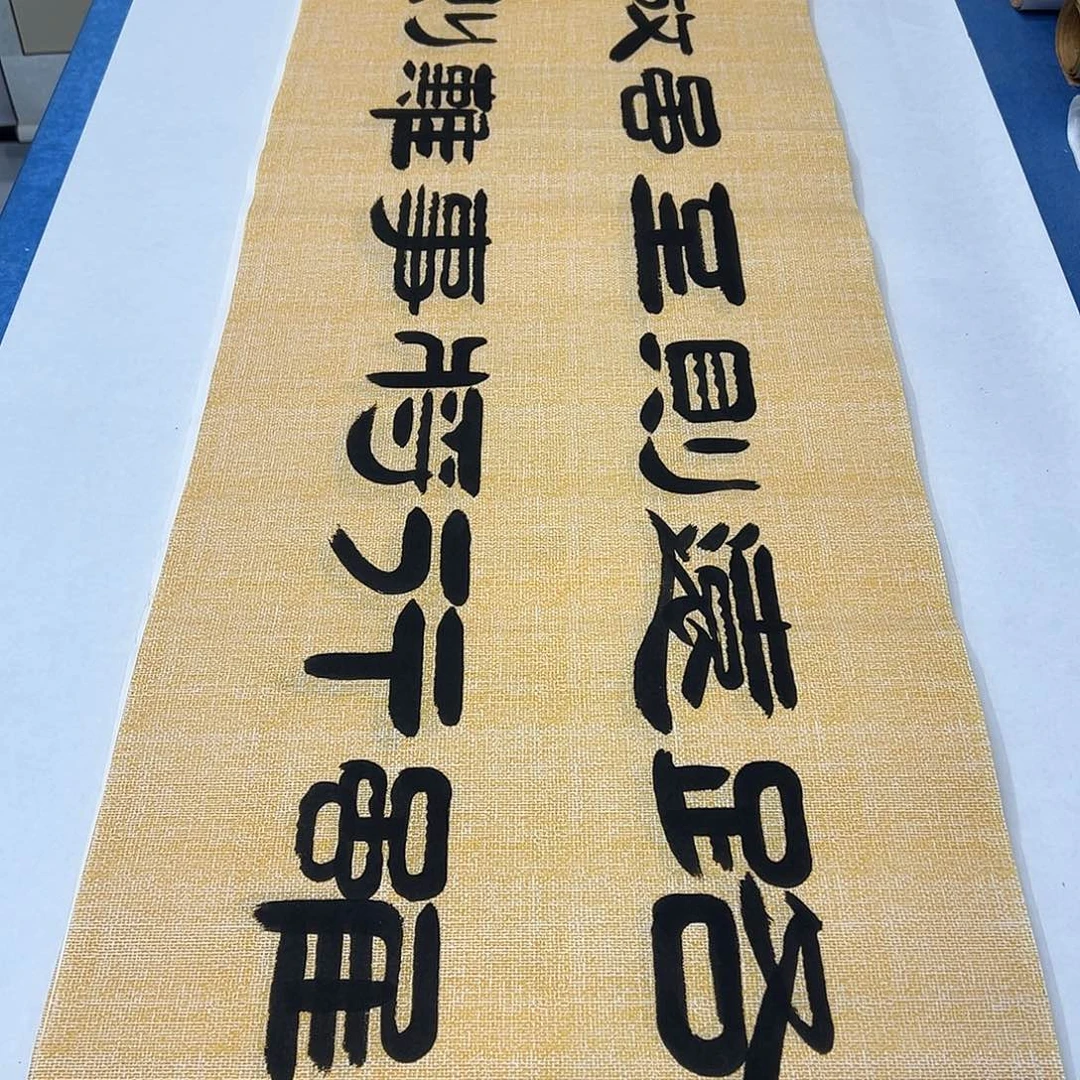 路雖
遠行
則將
至事
虽難